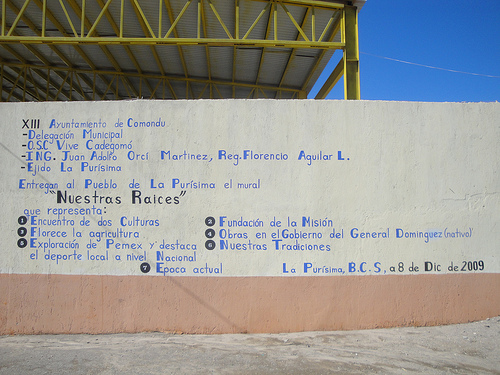 XIII Ayuntamiento de Comondu
-Delegación Municipal
-O.S.C Vive Cadegomó
-ING. Juan Adolfo Orcí Martinez, Reg. Florencio Aguilar L.
-Ejido La Purísima
Entregan al Pueblo de La Purísima el mural
"Nuestras Raices"
que representa:
1 Encuentro de dos Culturas
2 Fundación de la Misión
3 Florece la agricultura
4 Obras en el Gobierno del General Dominguez (nativo)
5 Exploración de Pemex y destaca
el deporte local a nivel Nacional
6 Nuestras Tradiciones
7 Epoca actual
La Purísima, B.C.S, a 8 de Dic de 2009